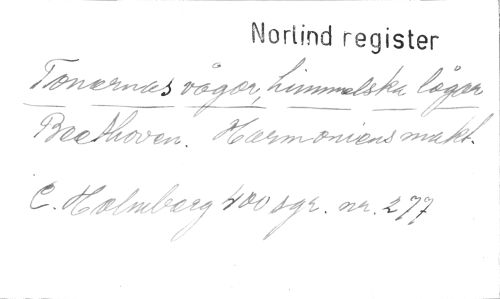 Norlind register
Tonernas vågor, himmelska lågor
Beethoven. Harmoniens makt.
C. Holmberg 400 sgr. nr. 277